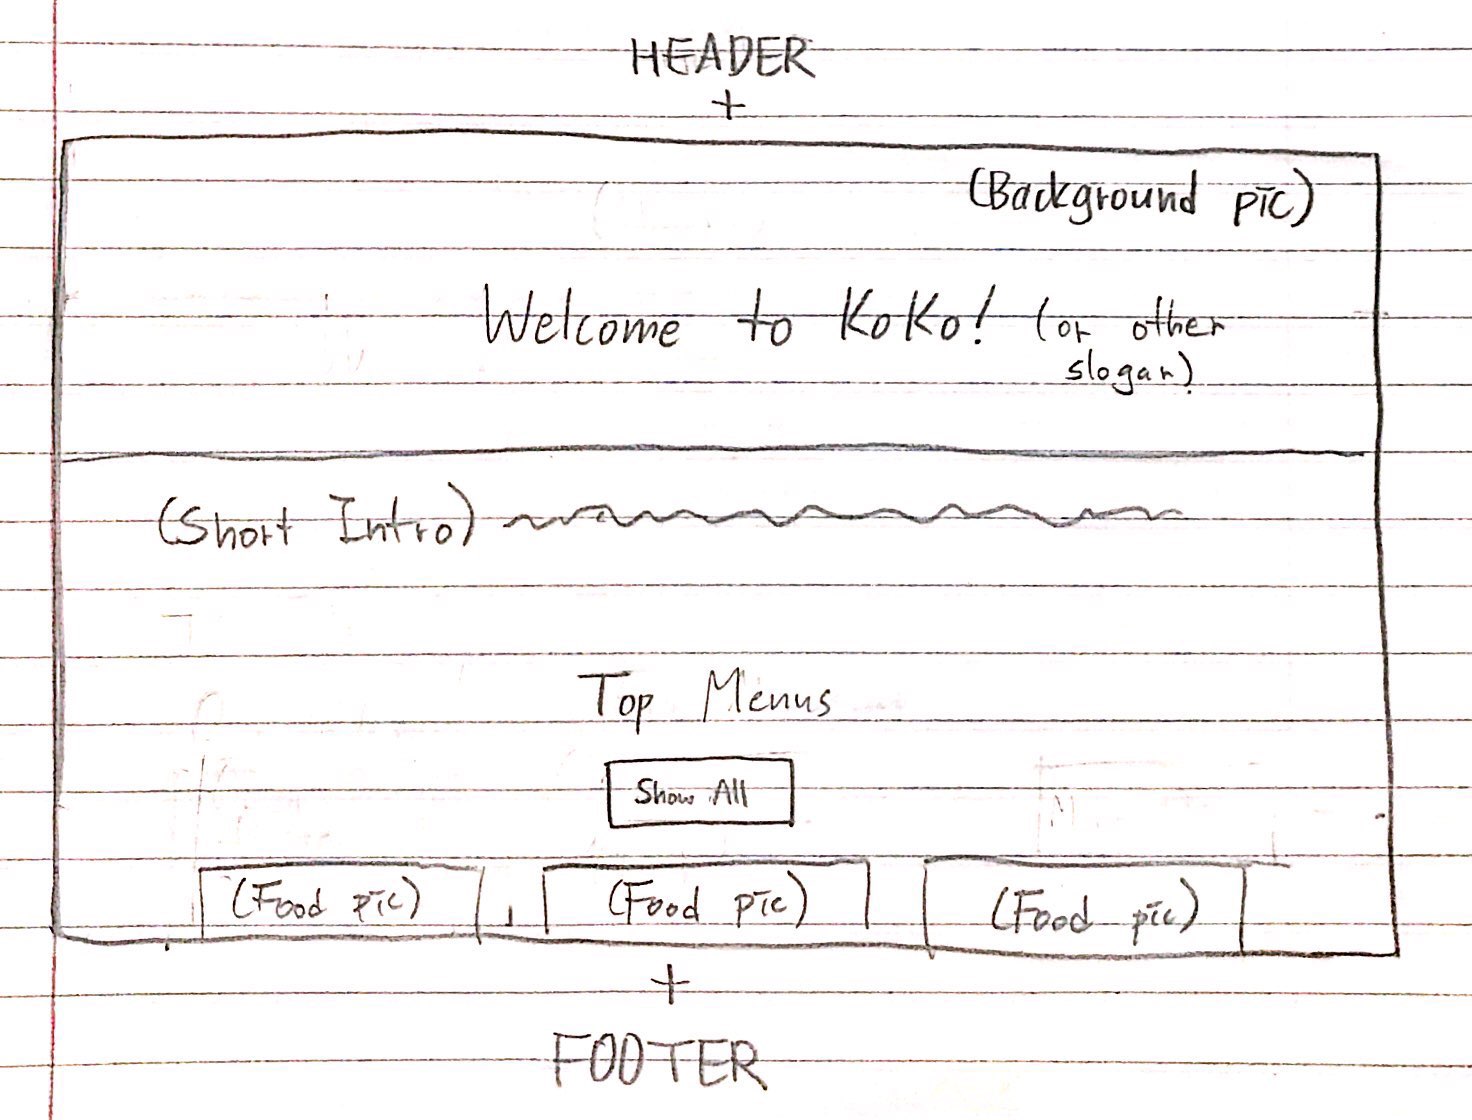 HEADER
+
(Background pic)
Welcome to KoKo! (or other
slogan)
(Short Intro)
Top Menus
Show All
(Food pic) (Food pic) (Food pic)
+
FOOTER